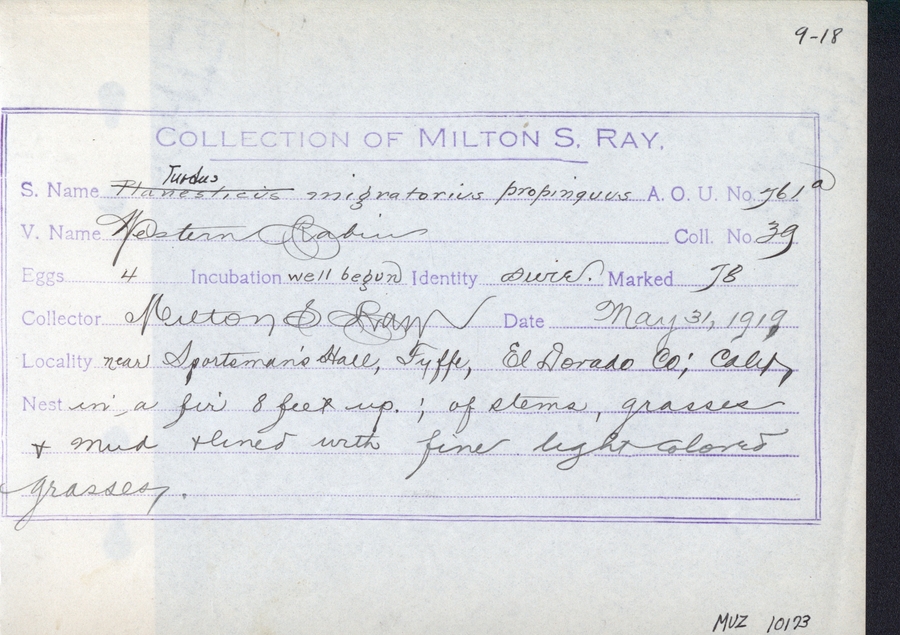 9-18
COLLECTION OF MILTON S. RAY.
Turdus
S. Name Planesticus migratorius propinquus A. O. U. No. 761a
V. Name Western Robin Coll. No. 39
Eggs 4 Incubation well begun Identity sure. Marked JB
Collector Milton S Ray Date May 31, 1919
Locality near Sportsman's Hall, Fyffe, El Dorado Co; Calif,
Nest in a fir 8 feet up. ; of stems, grasses
& mud & lined with fine light colored
grasses.
MVZ 10173